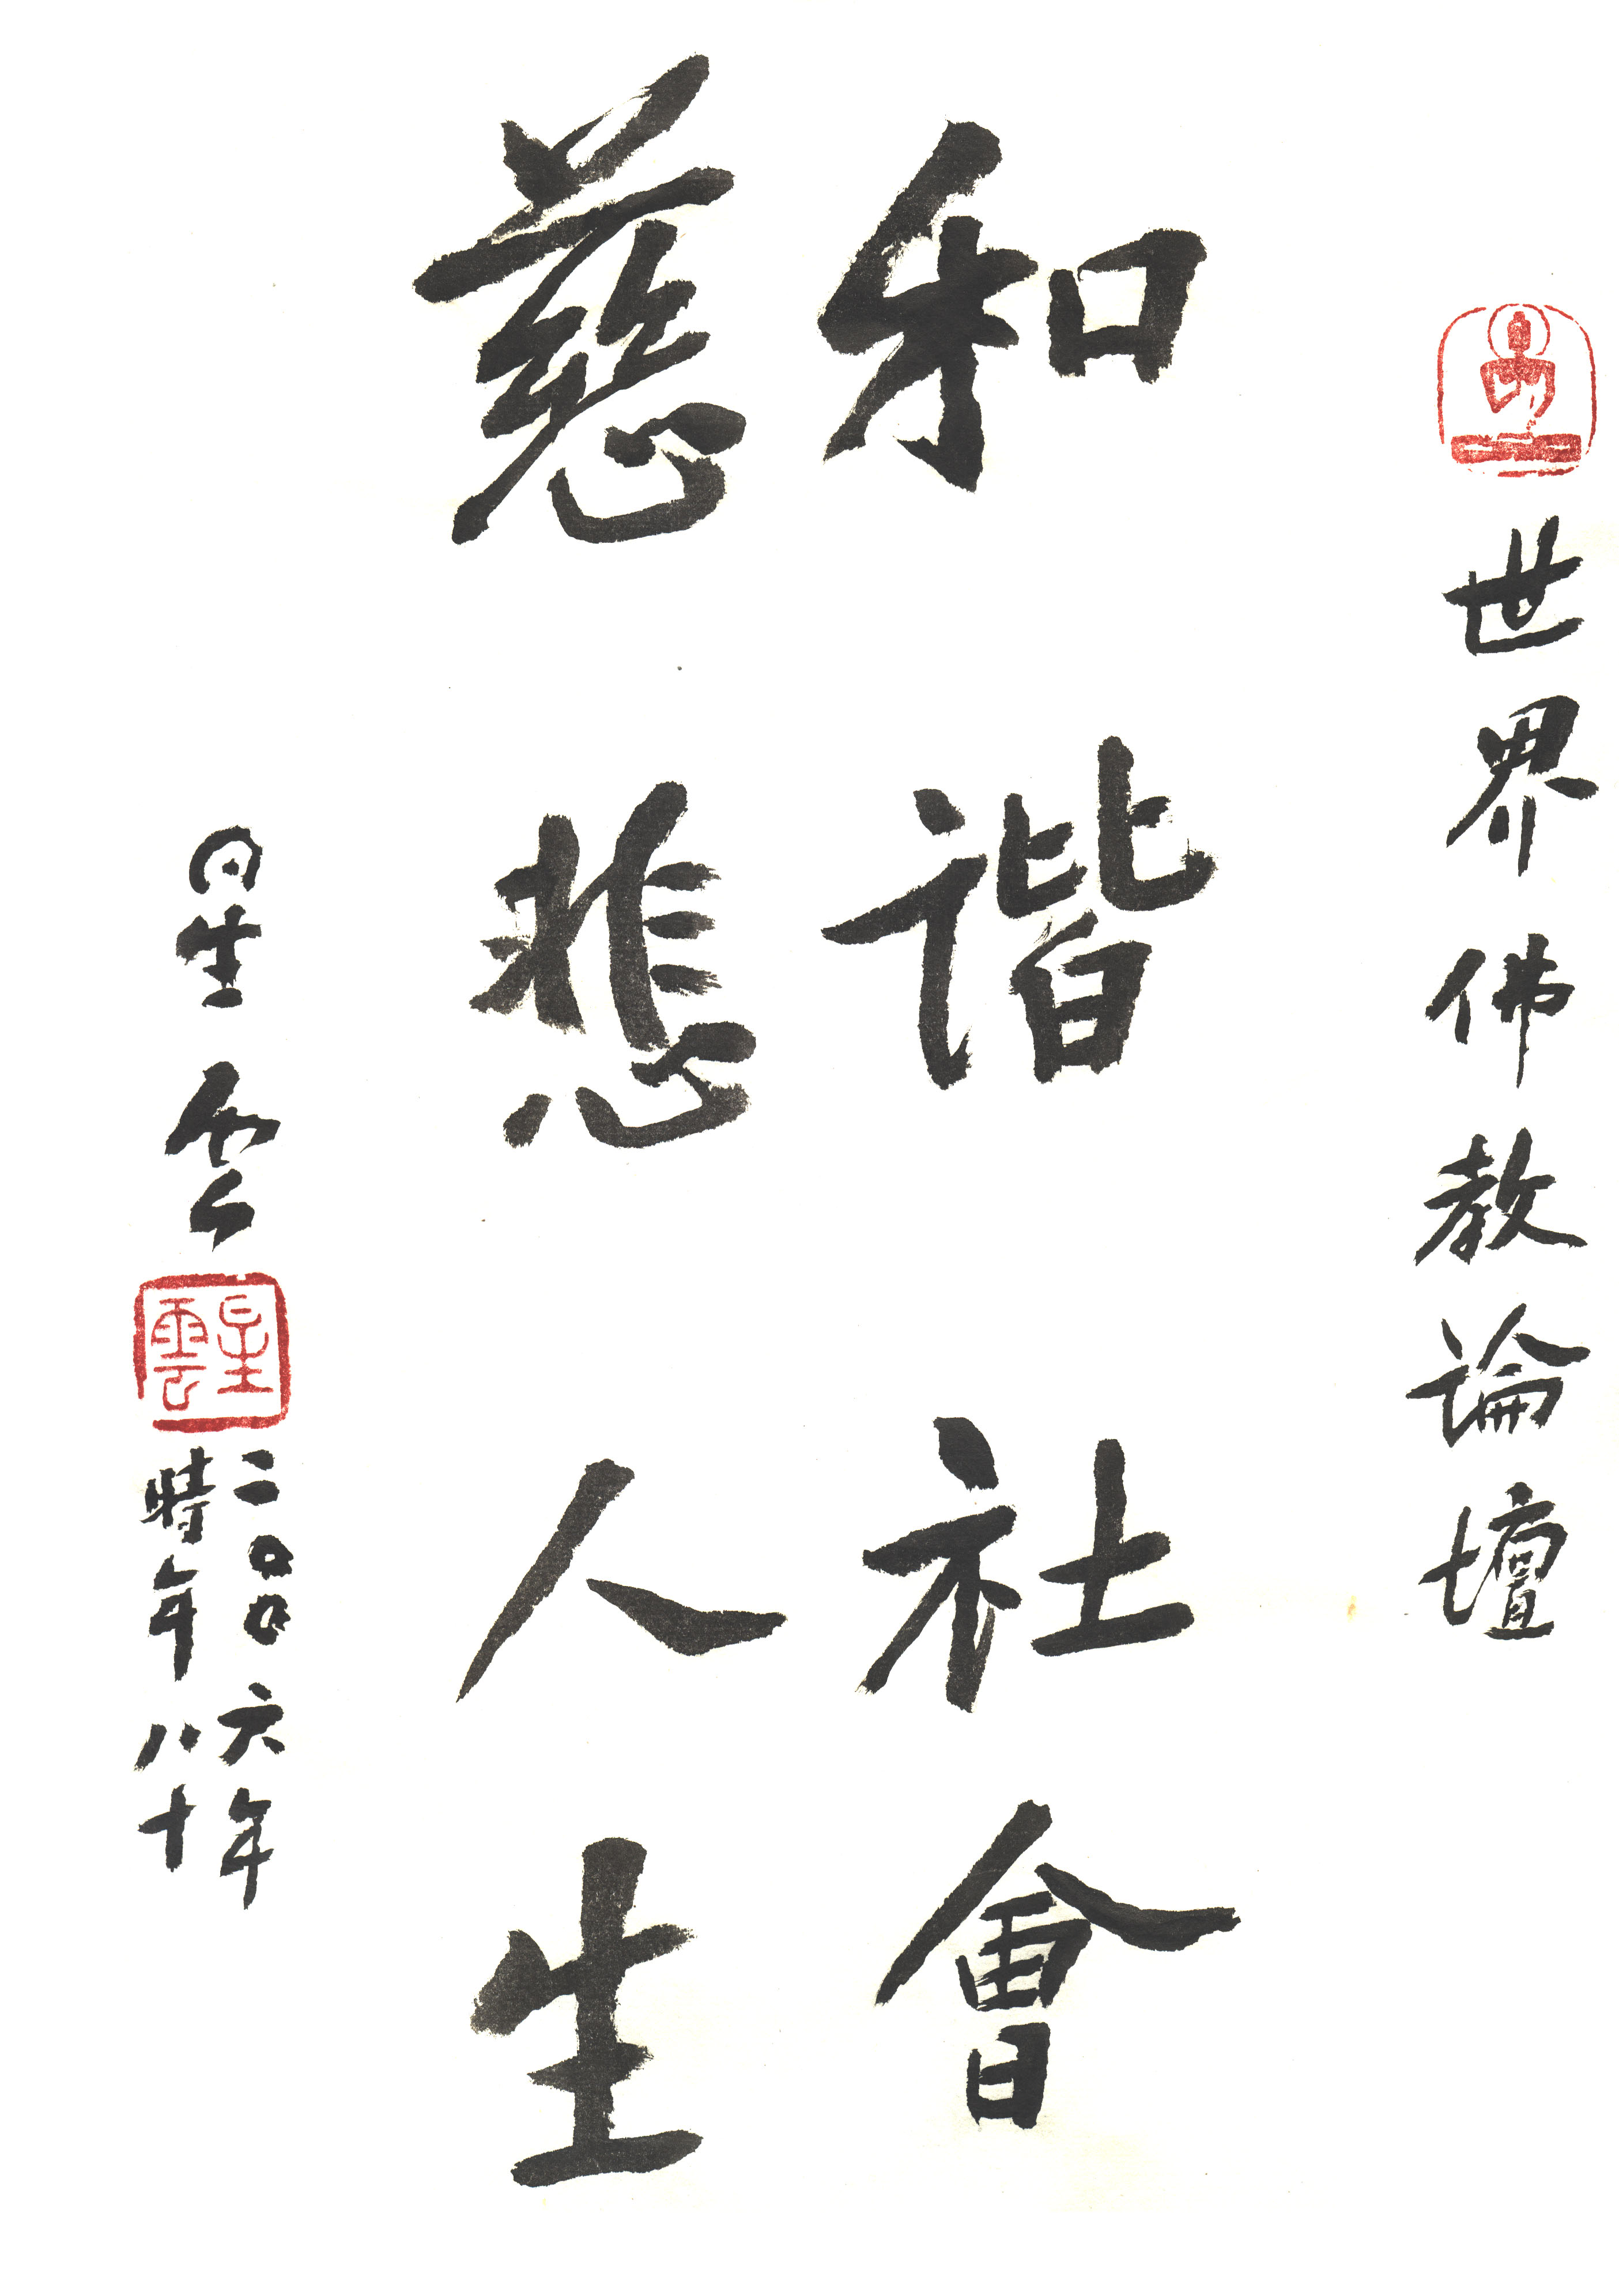 世界佛教論壇
和諧社會
慈悲人生
星雲
星雲
二〇〇六年
時年八十